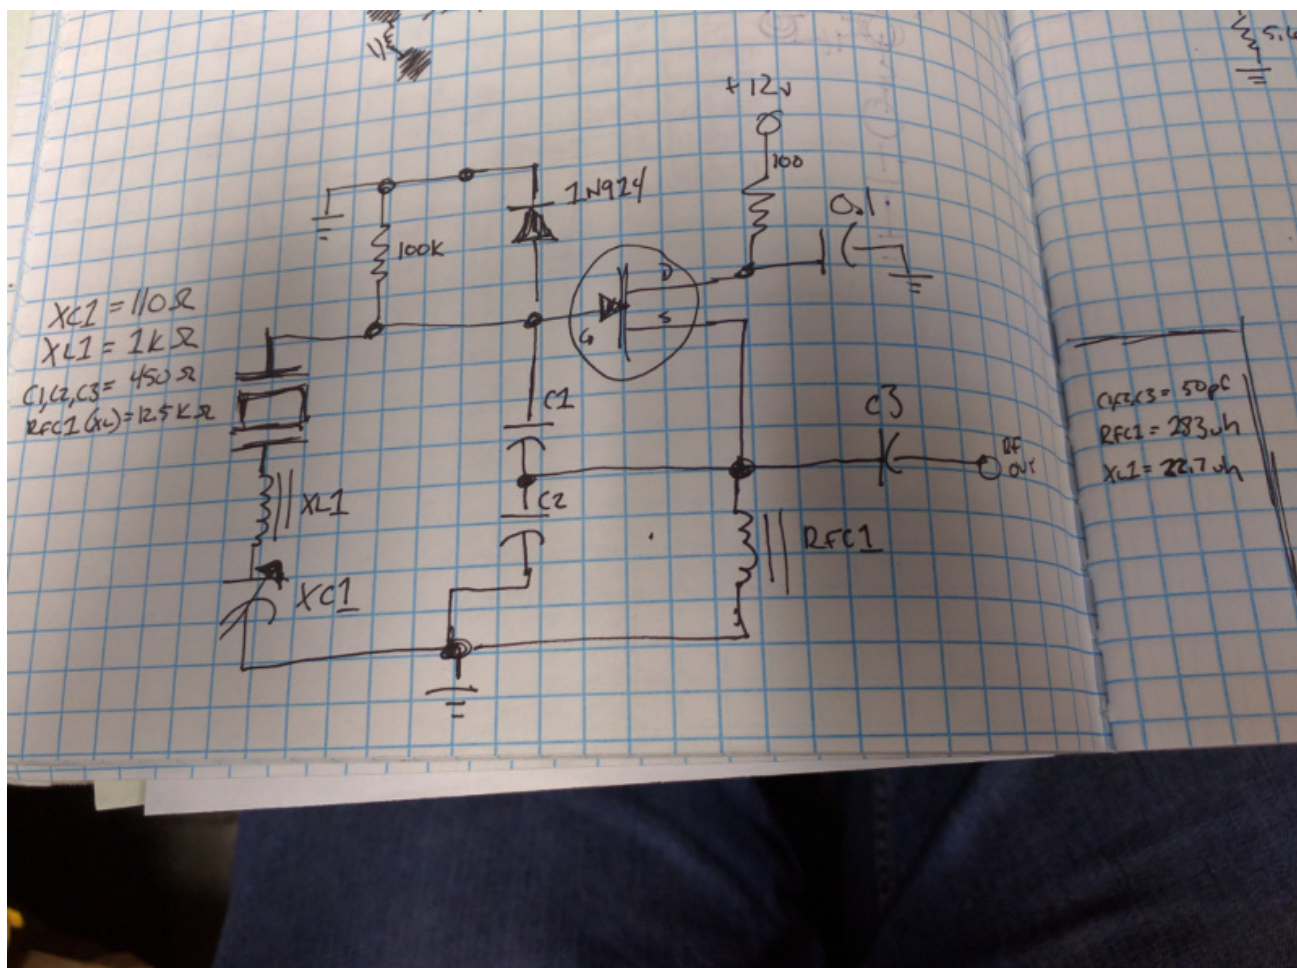 +12v
100
1N914
0.1
100K
D
S
G
XC1 = 110Ω
XL1 = 1K Ω
C1,C2,C3 = 450 Ω
RFC1 (XL) = 12.5K Ω
C1
C3
RF
OUT
C2
XL1
RFC1
XC1
C1,C2,C3 = 50pf
RFC1 = 283uh
XL1 = 22.7uh